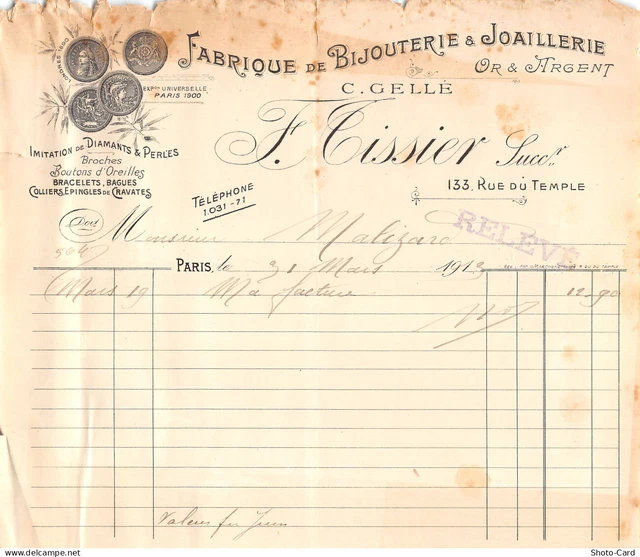 FABRIQUE DE BIJOUTERIE & JOAILLERIE
OR & ARGENT
LONDRES 1890
EXPon UNIVERSELLE
PARIS 1900
C. GELLÉ
F. Tissier Succr
133, RUE DU TEMPLE
IMITATION DE DIAMANTS & PERLES
Broches
Boutons d'Oreilles
BRACELETS, BAGUES
COLLIERS, EPINGLES DE CRAVATES
TÉLÉPHONE
1.031-71
Doit
Monsieur Malizard
RELEVÉ
PARIS, le 31 Mars 1913
Mars 19 Ma facture 12.90
Valeur fin Juin
Photo-Card
www.delcampe.net
Shoto-Card